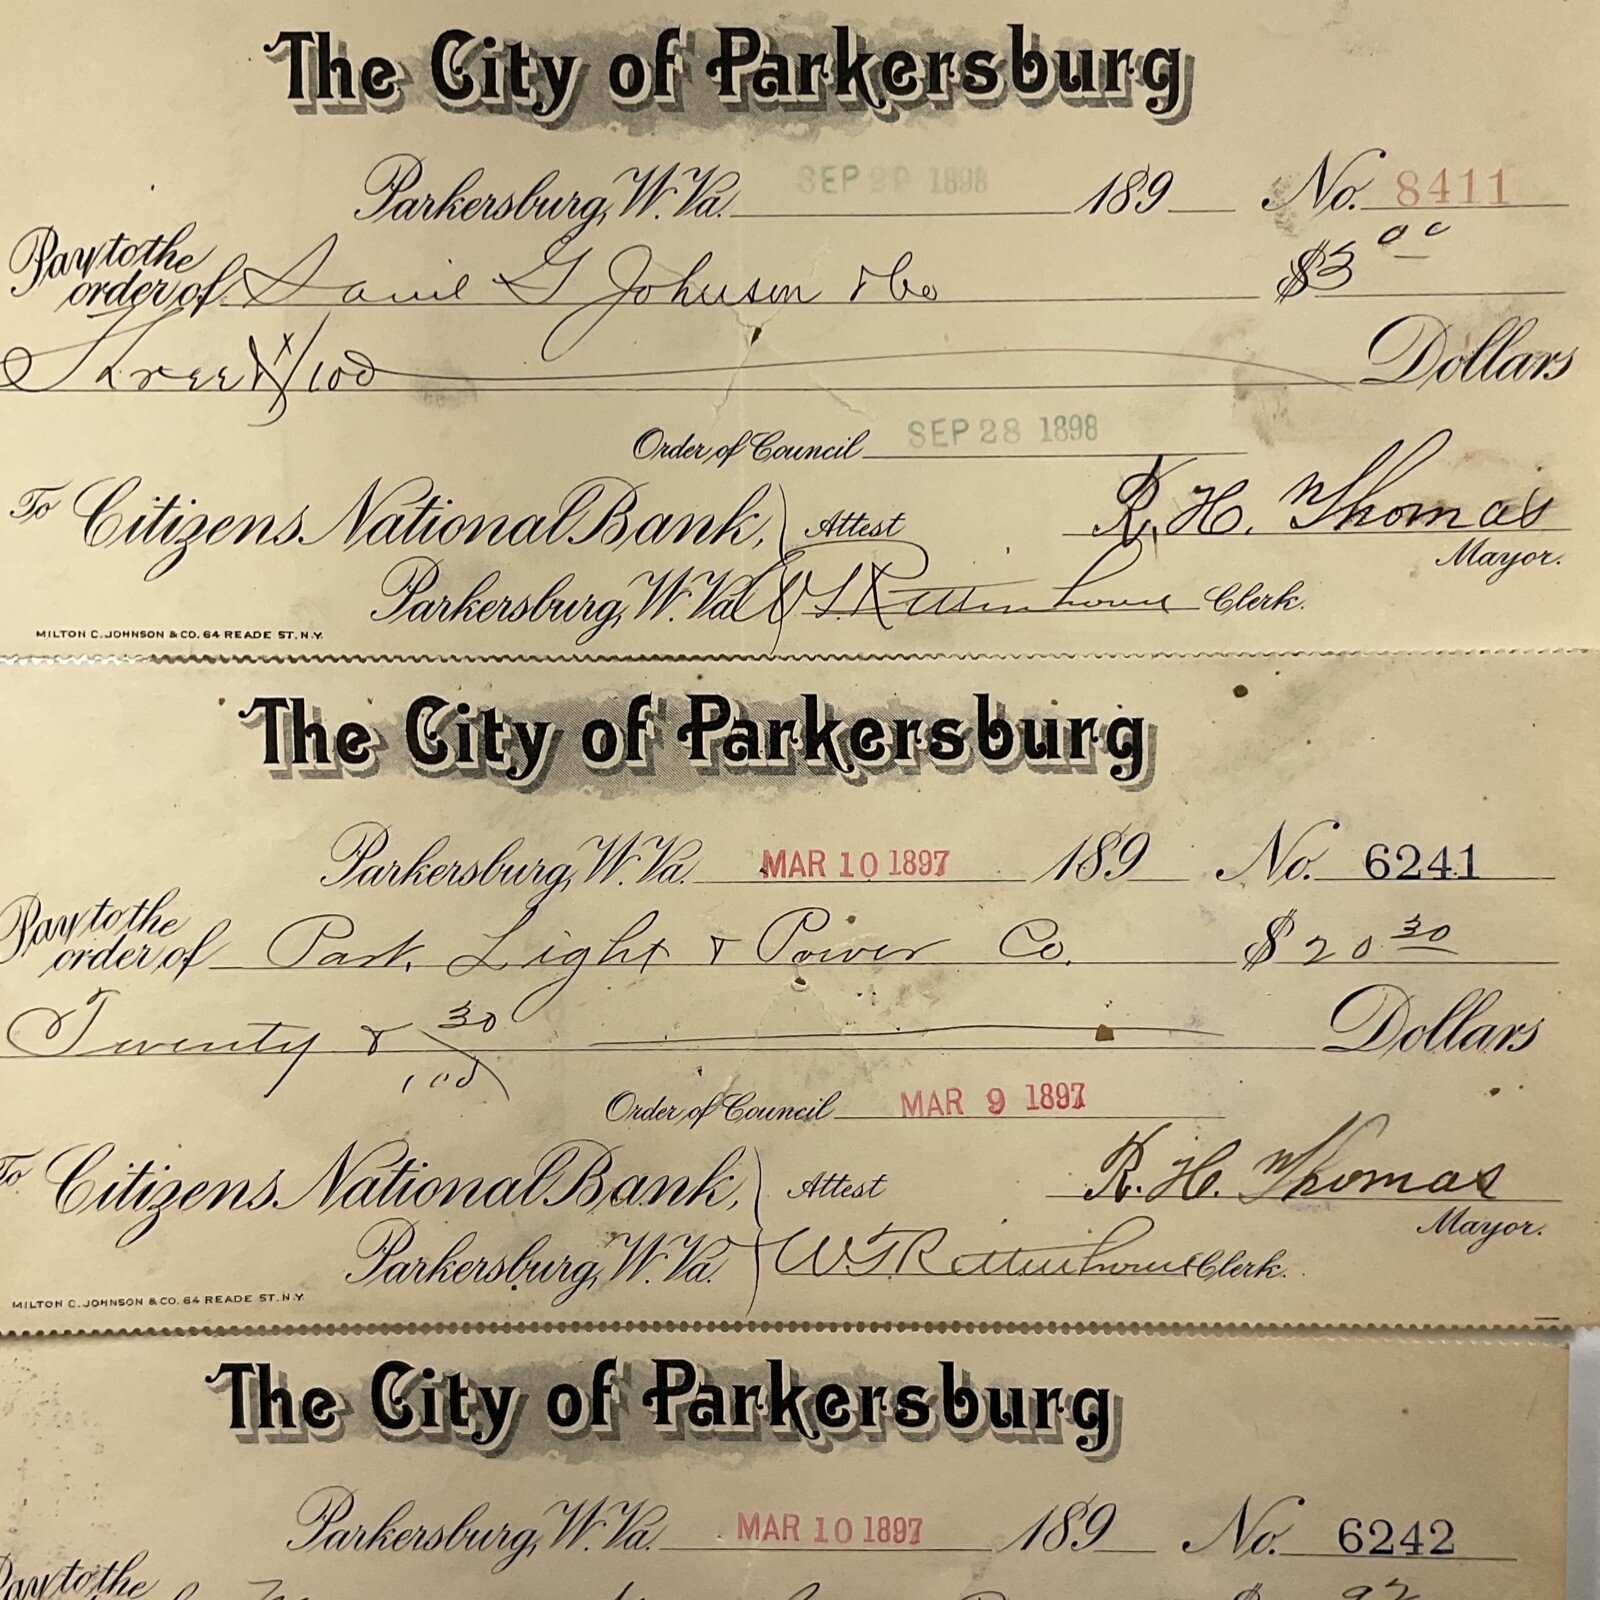 The City of Parkersburg
Parkersburg, W. Va. SEP 1898 189 No. 8411
Pay to the
order of G Johnson & Co $3 00
Three & x/100 Dollars
Order of Council SEP 28 1898
To Citizens National Bank, Attest R. H. Thomas
Mayor.
Parkersburg, W. Va. W T Rittenhouse Clerk.
MILTON C. JOHNSON & CO. 64 READE ST. N.Y.
The City of Parkersburg
Parkersburg, W. Va. MAR 10 1897 189 No. 6241
Pay to the
order of Park. Light & Power Co. $20 30
Twenty & 30/100 Dollars
Order of Council MAR 9 1897
To Citizens National Bank, Attest R. H. Thomas
Mayor.
Parkersburg, W. Va. W T Rittenhouse Clerk.
MILTON C. JOHNSON & CO. 64 READE ST. N.Y.
The City of Parkersburg
Parkersburg, W. Va. MAR 10 1897 189 No. 6242
Pay to the